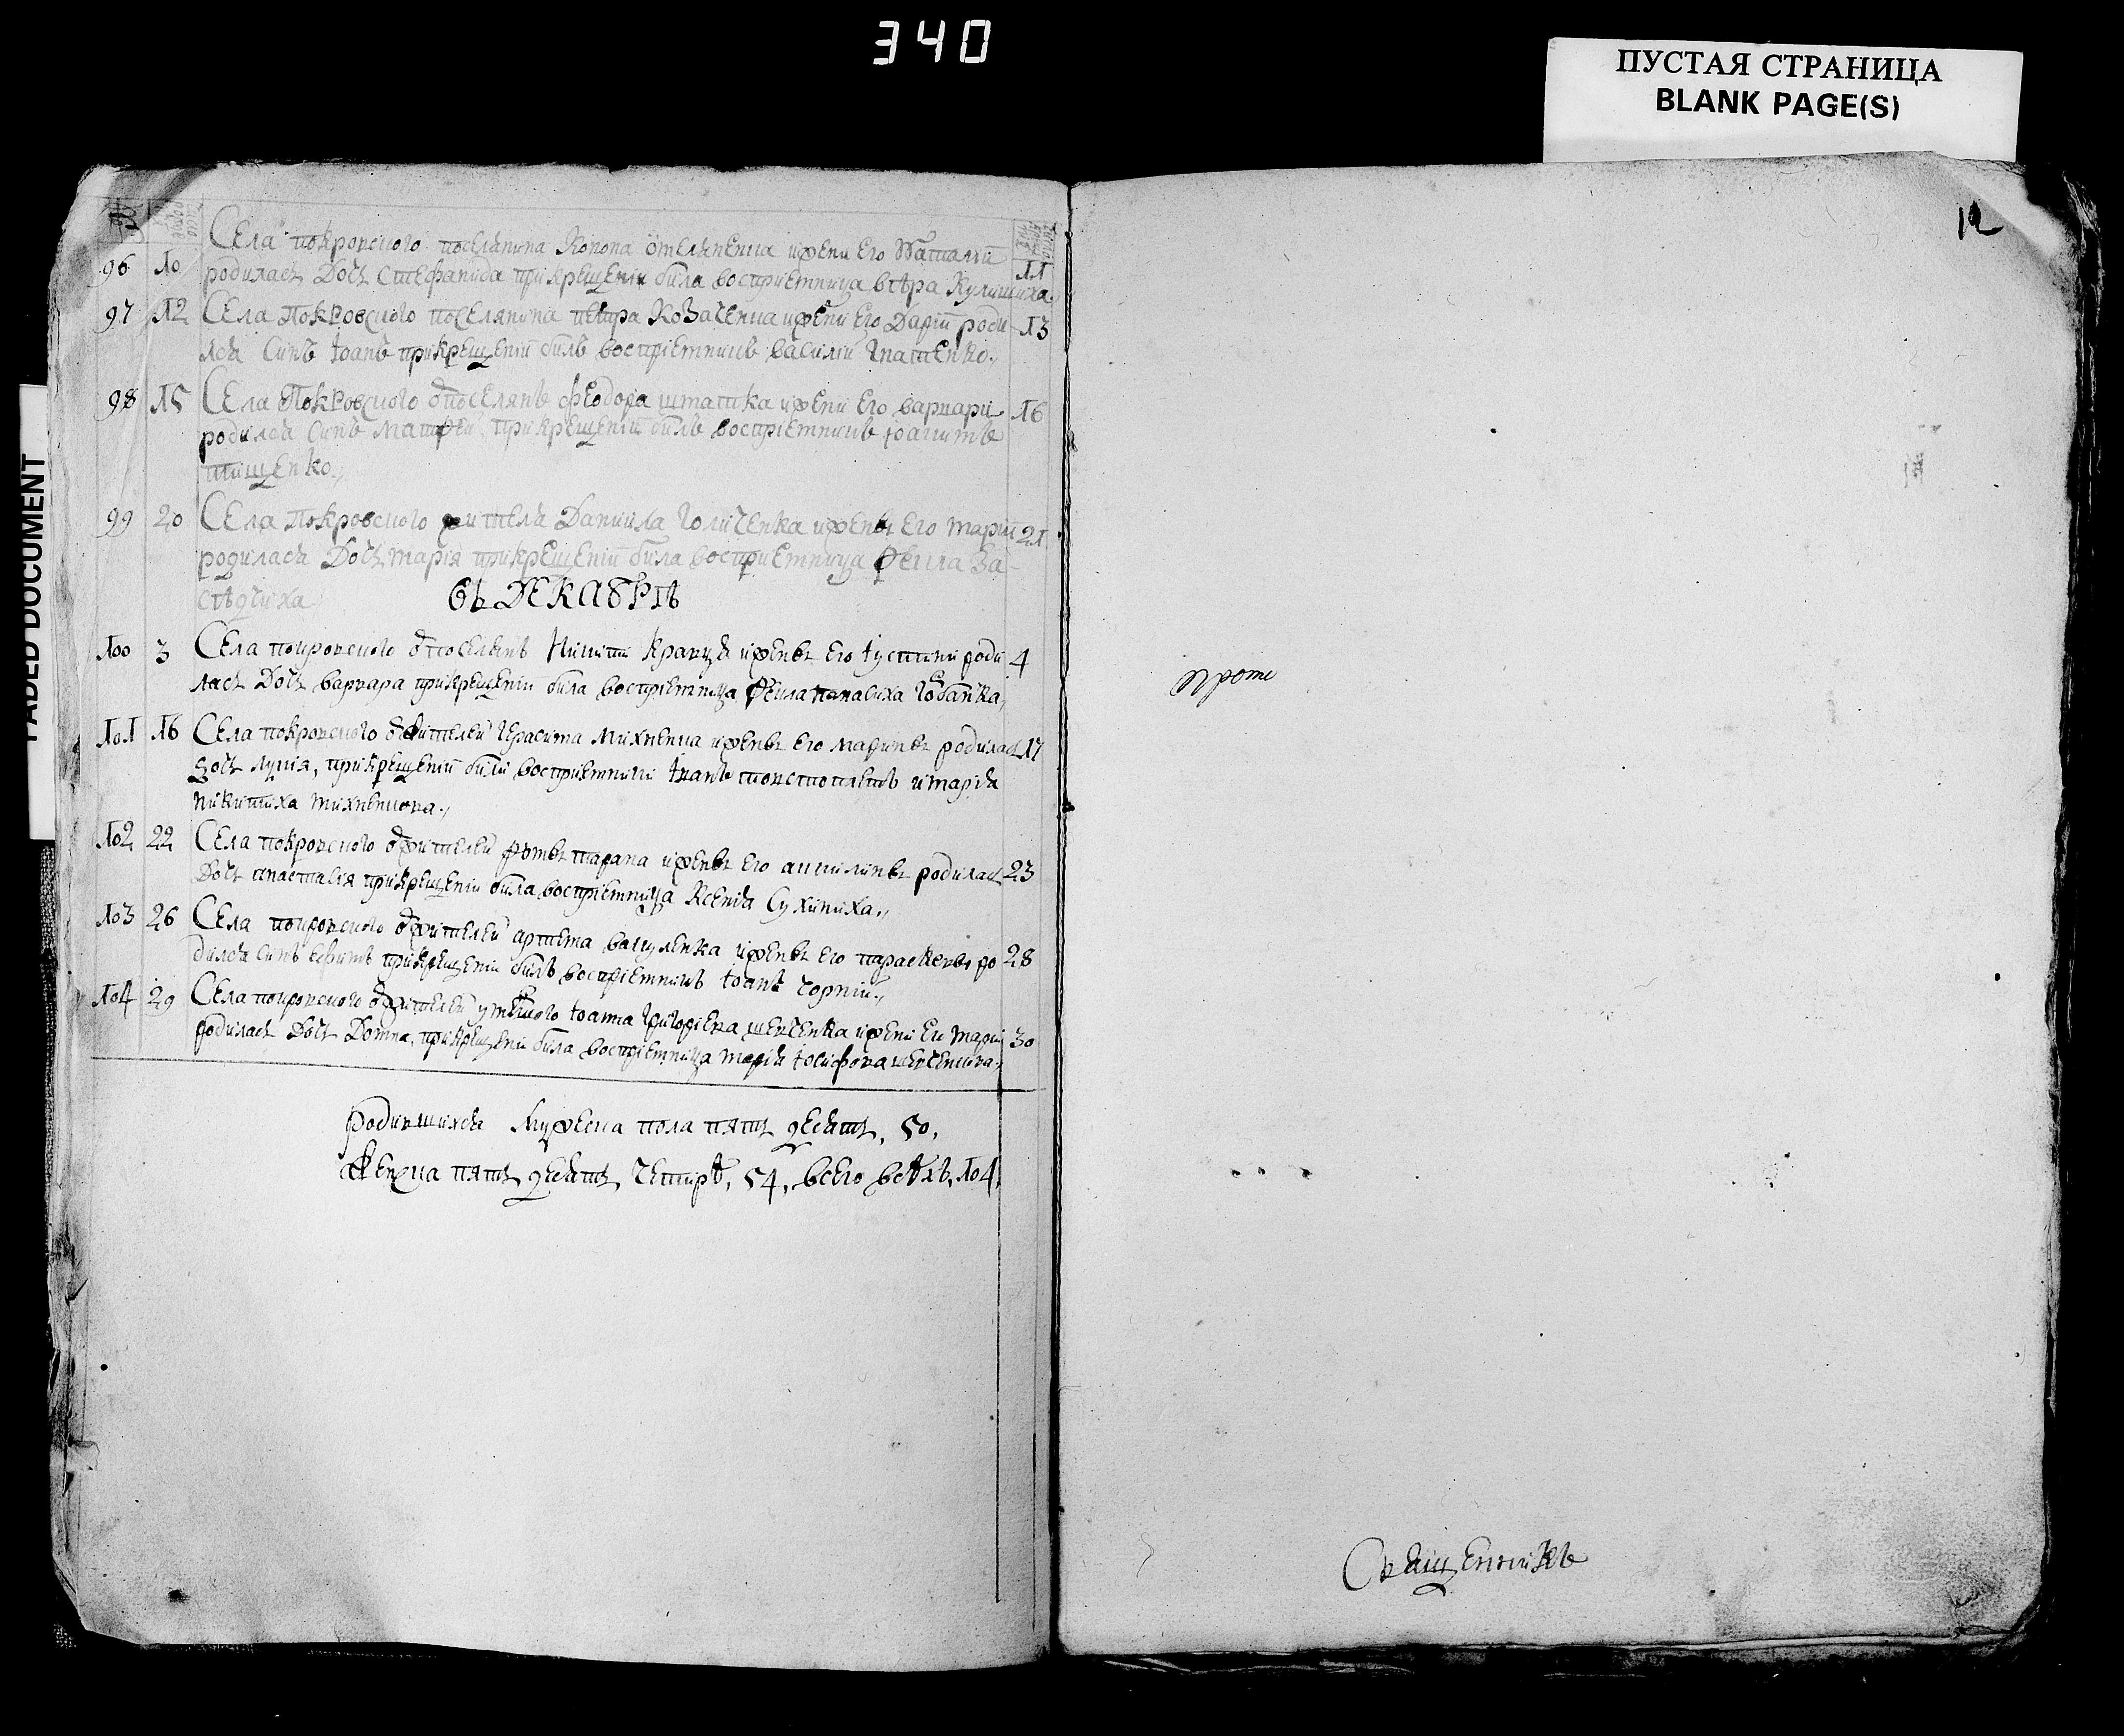 340
ПУСТАЯ СТРАНИЦА
BLANK PAGE(S)
FADED DOCUMENT
12
Села покровского поселянина Конона Омеляненка и жени его Наталии
96 10 родилась Дочь Стефанида при крещении била восприемница вѣра Кулишиха 11
97 12 Села Покровского поселянина петра Козаченка и жени его Дарии роди 13
лся Синъ Іоанъ при крещении билъ восприемникъ василий Игнатенко
98 15 Села Покровского поселянъ феодора и жени его варвари 16
родился Синъ Матфей при крещении билъ восприемникъ
тищенко
99 20 Села Покровского жителя Даниила Голиченка и женѣ его марии 21
родилась Дочь Мария при крещении била восприемница Феила За-
сѣдчиха
Въ ДЕКАБРѢ
100 3 Села покровского поселянъ Никити Кравця и женѣ его Іустини роди 4
лась Дочь варвара при крещении била восприемница Феила
101 16 Села покровского жителей Герасима Михненка и женѣ его Маринѣ родилась 17
дочь Лукия, при крещении били восприемники Іванъ и мария
никитиха михненкова
102 22 Села покровского жителей тарана и женѣ его акилинѣ родилась 23
Дочь анастасия при крещении била восприемница Ксения Сухиниха
103 26 Села покровского жителей артема вакуленка и женѣ его параскевѣ ро 28
дился Синъ ефимъ при крещении билъ восприемникъ Іоанъ чорний
104 29 Села покровского жителей Іоанна Григориева шевченка и жени его марии 30
родилась Дочь Домна, при крещении била восприемница мария Іосифова шевченкова
родившихся Мужеска пола пять десять, 50,
Женска пять десять четирѣ, 54, всего всѣхъ, 104.
Священникъ